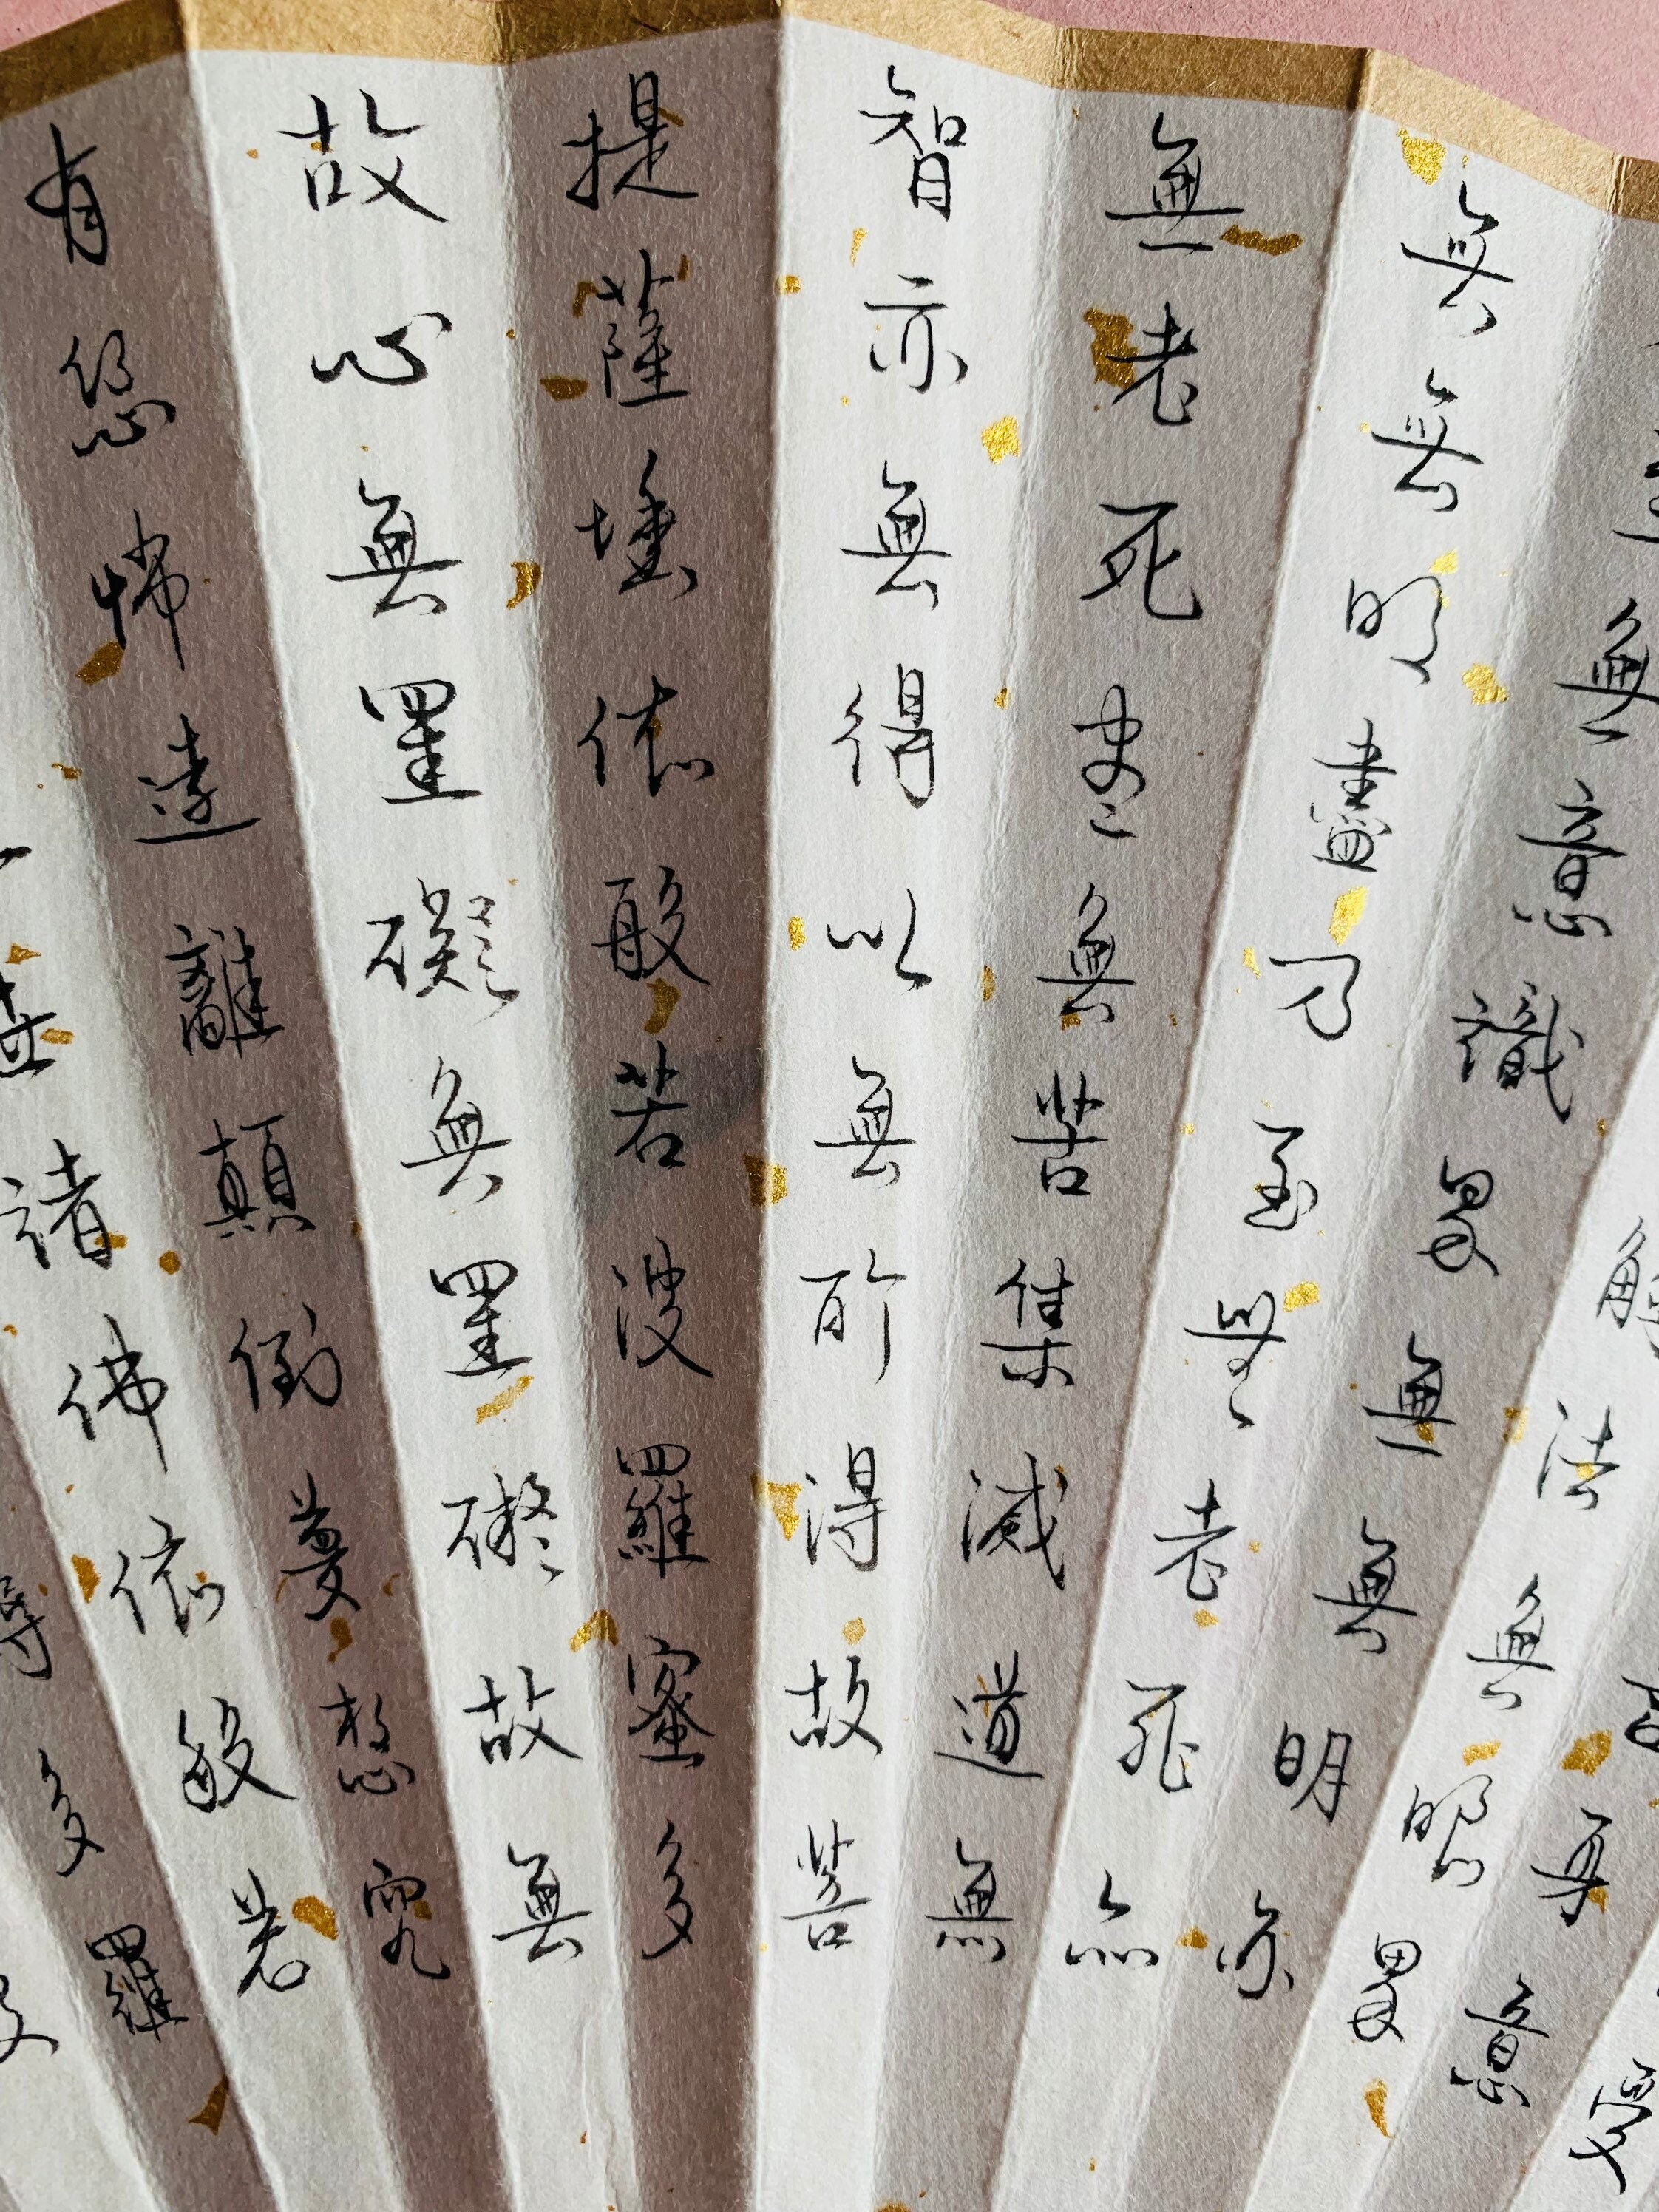 受
身意
法無眼界
無意識界無無明亦
無無明盡乃至無老死亦
無老死盡無苦集滅道無
智亦無得以無所得故菩
提薩埵依般若波羅蜜多
故心無罣礙無罣礙故無
有恐怖遠離顛倒夢想究
諸佛依般若
多羅